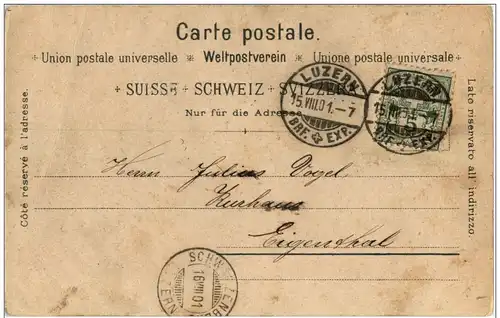 Carte postale.
Union postale universelle Weltpostverein Unione postale universale
SUISSE SCHWEIZ SVIZZERA
Nur für die Adresse
Côté réservé à l'adresse.
Lato riservato all' indirizzo.
LUZERN
15.VIII.01.-7
BRF. EXP.
LUZERN
BRF. EXP.
Herrn Julius Vogel
Kurhaus
Eigenthal
16 VIII 01